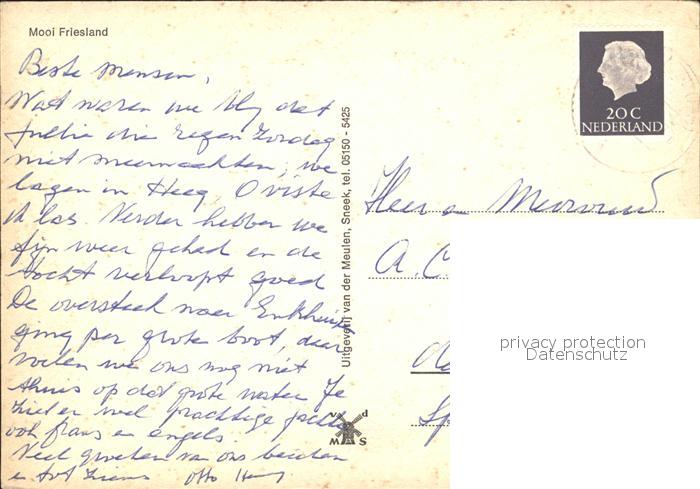 Mooi Friesland
Beste mensen,
Wat waren we blij dat
jullie die regen zondag
niet meemaakten, we
lagen in Heeg,
ik las. Verder hebben we
fijn weer gehad en de
tocht verloopt goed
De oversteek naar Enkhuiz
ging per grote boot, daar
voelen we ons nog niet
thuis op dat grote water. Je
ziet er wel prachtige
ook frans en engels.
Veel groeten van ons beiden
en tot ziens Otto
Uitgeverij van der Meulen, Sneek, tel. 05150 - 5425
v d
M S
20 C
NEDERLAND
Heer en Mevrouw
A. C.
privacy protection
Datenschutz